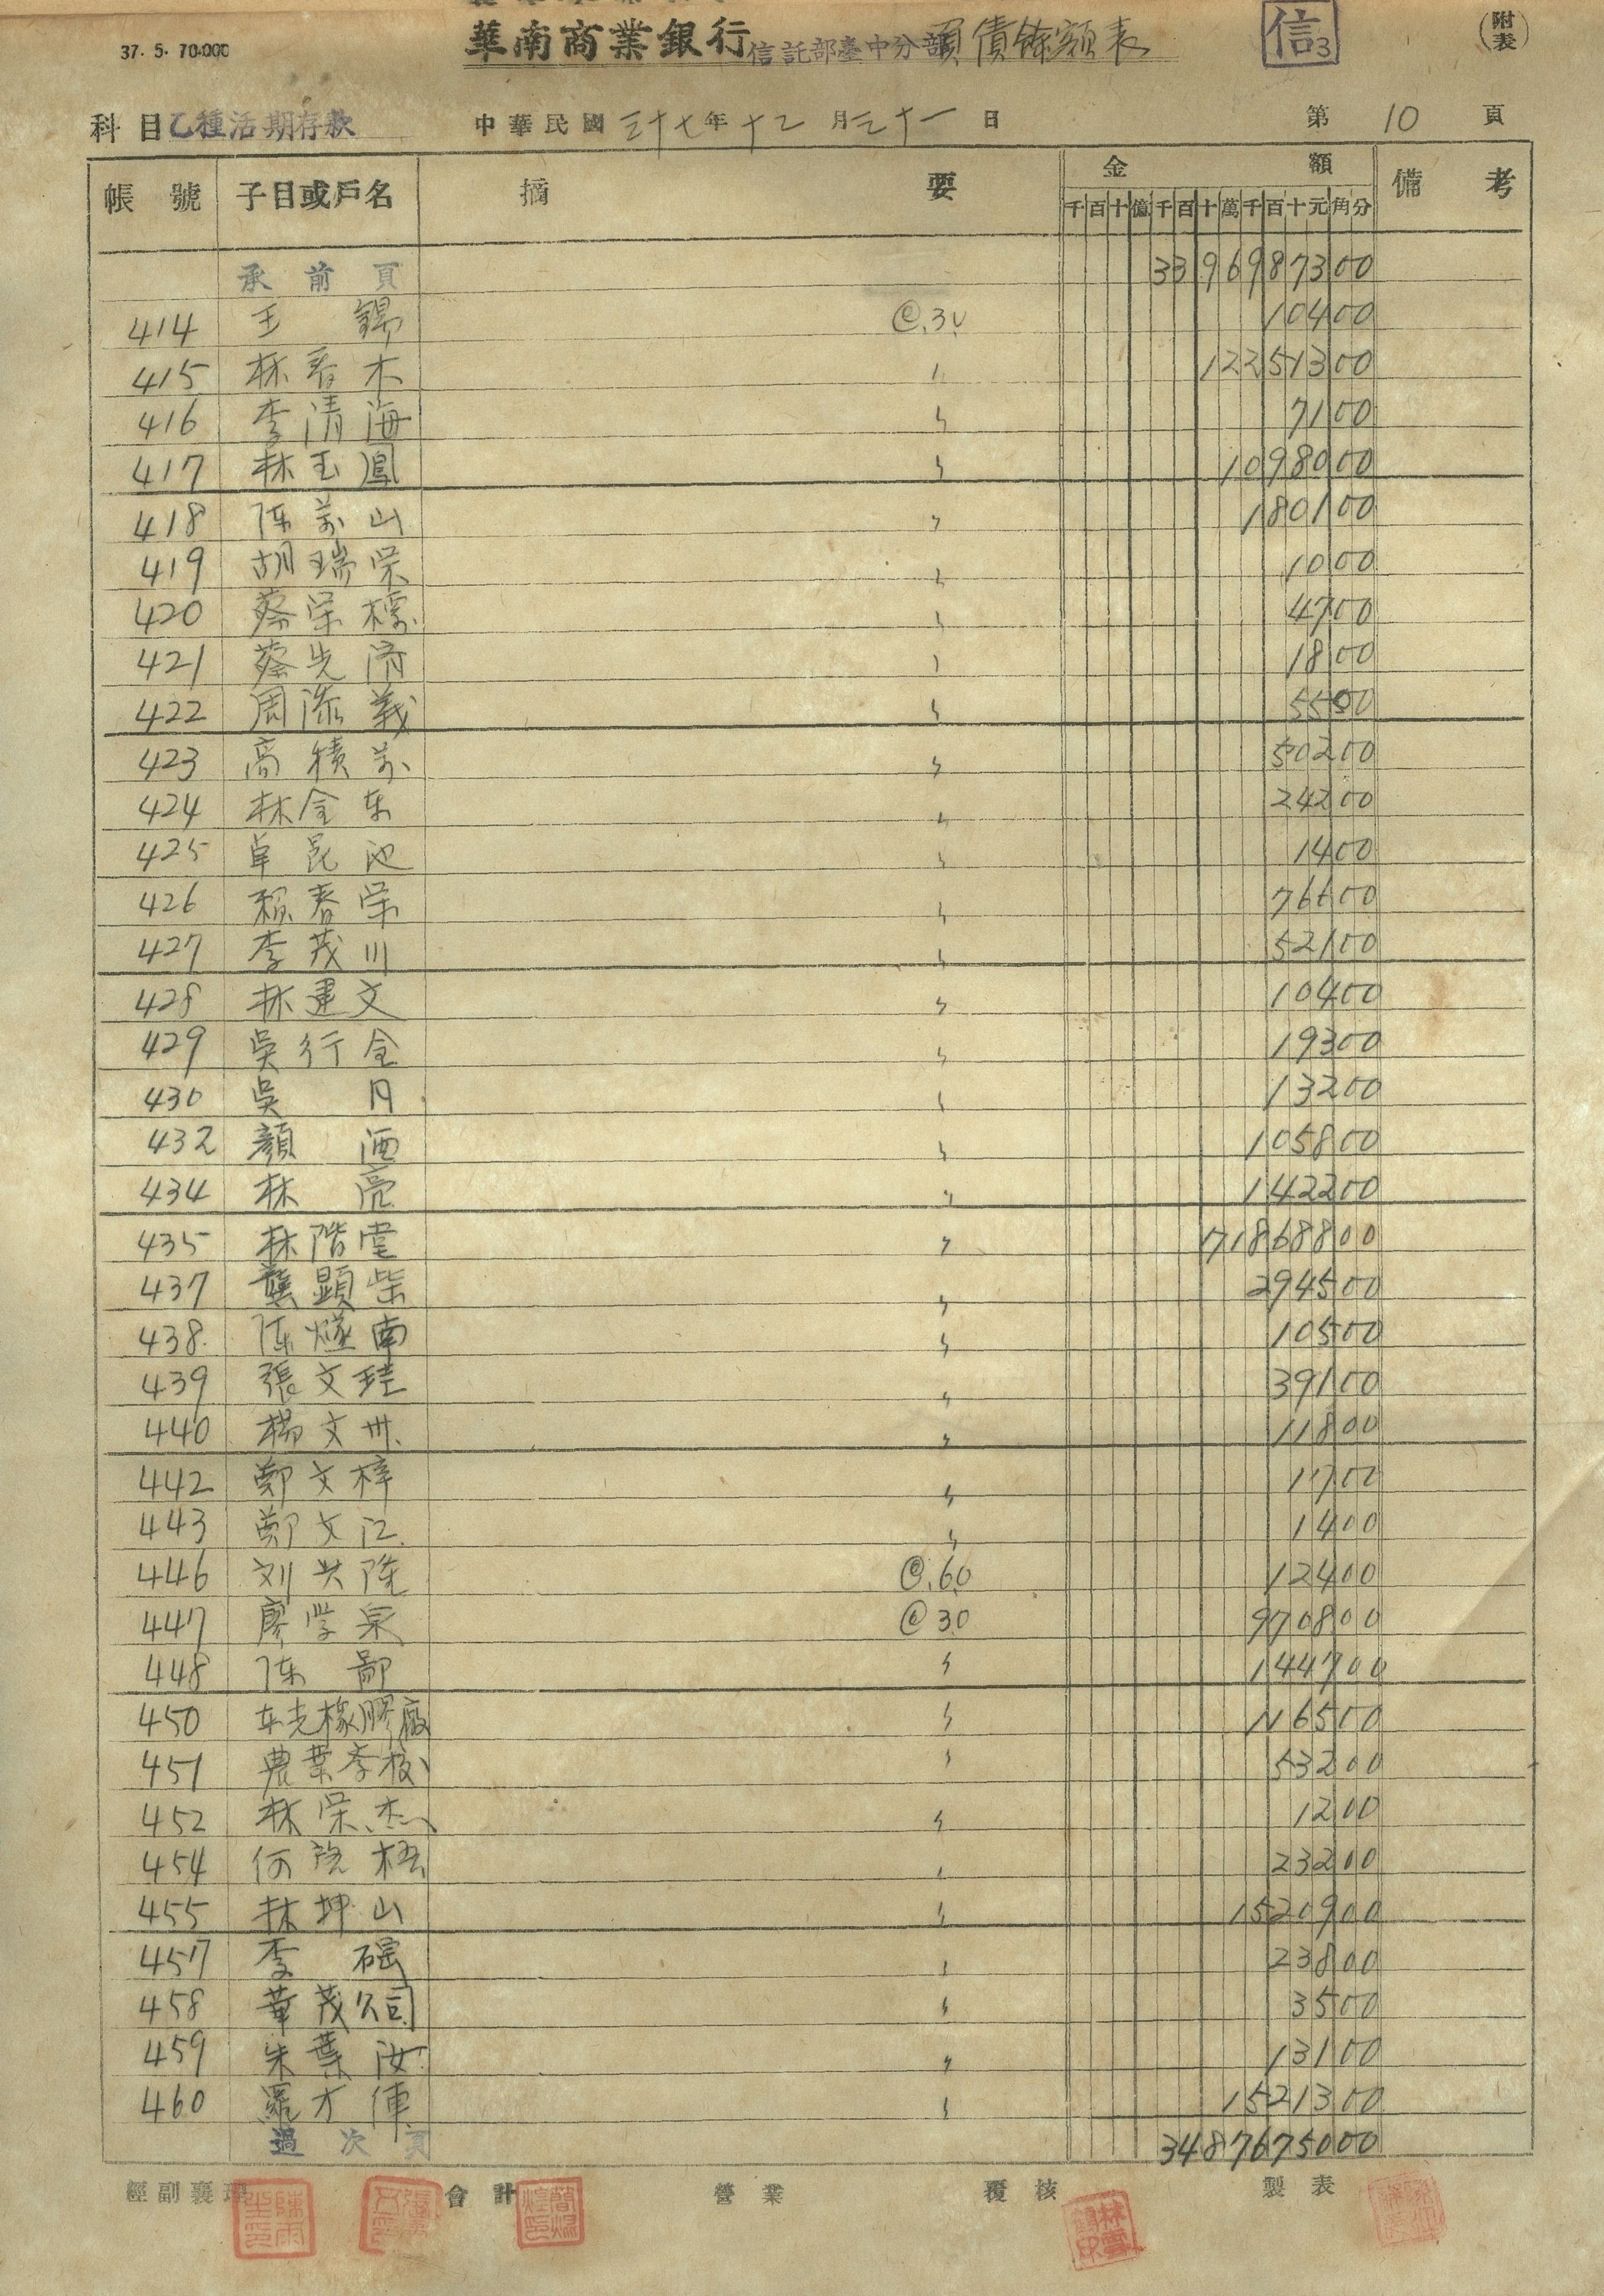 37. 5. 70.000
華南商業銀行信託部臺中分部負債餘額表
信3
(附表)
科目乙種活期存款 中華民國三十七年十二月三十一日 第10頁
帳號 子目或戶名 摘要 金額 備考
千百十億千百十萬千百十元角分
承前頁 33969873 00
414 王錫 @.30 104 00
415 林春木 〃 122513 00
416 李清海 〃 71 00
417 林玉鳳 〃 10980 00
418 陈萬山 〃 1801 00
419 胡瑞栄 〃 10 00
420 蔡栄標 〃 47 00
421 蔡先済 〃 18 00
422 周添義 〃 55 00
423 高積萬 〃 502 00
424 林金东 〃 242 00
425 卓昆池 〃 14 00
426 賴春栄 〃 766 00
427 李茂川 〃 521 00
428 林建文 〃 104 00
429 吳行全 〃 193 00
430 吳月 〃 132 00
432 顏洒 〃 1058 00
434 林亮 〃 1422 00
435 林階堂 〃 718688 00
437 龔顕柴 〃 2945 00
438 陈燧南 〃 105 00
439 張文珪 〃 391 00
440 楊文州 〃 118 00
442 鄭文梓 〃 17 00
443 鄭文江 〃 14 00
446 刘兴隆 @.60 124 00
447 廖学泉 @30 9708 00
448 陈鄙 〃 1447 00
450 东光橡膠廠 〃 1165 00
451 農業学校 〃 532 00
452 林栄杰 〃 12 00
454 何 松 〃 232 00
455 林坤山 〃 15209 00
457 李 〃 238 00
458 華茂公司 〃 35 00
459 朱葉汝 〃 131 00
460 羅才俥 〃 15213 00
過次頁 34876750 00
經副襄理 會計 營業 覆核 製表